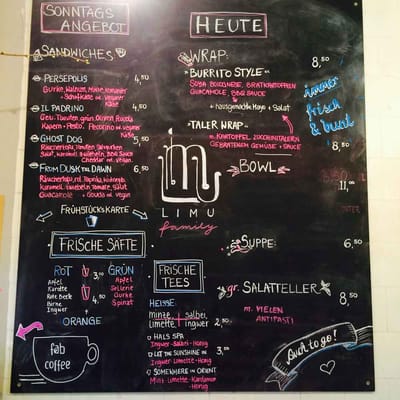 SONNTAGS
ANGEBOT
SANDWICHES
PERSEPOLIS 4,50
Gurke, Walnuss, Minze,
+ Schafskäse od. veganer
Käse
IL PADRINO 4,50
Get. Tomaten, grün. Oliven, Rucola
Kapern - Pesto Pecorino od. veganer
Käse
GHOST DOG 5,50
Räuchertofu, Tomaten,
Salat, karamell. Zwiebeln, BBQ Sauce
Cheddar od. vegan
FROM DUSK TILL DAWN 6,50
Räuchertofu, rot. Paprika,
karamell. Zwiebeln, Tomate, Salat
Guacamole + Gouda od. vegan
FRÜHSTÜCKSKARTE
FRISCHE SÄFTE
ROT
Apfel
Karotte
Rote Beete
Birne
Ingwer
3,00
4,50
GRÜN
Apfel
Sellerie
Gurke
Spinat
ORANGE
fab
coffee
HEUTE
WRAP:
"BURRITO STYLE" 8,50
SOJA BOLOGNESE, BRATKARTOFFELN
GUACAMOLE, BBQ SAUCE
+ hausgemachte Mayo + Salat
TALER WRAP
m. KARTOFFEL ZUCCHINITALERN
GEBRATENEM GEMÜSE + SAUCE
8,50
immer
frisch
& bunt
LIMU
family
BOWL
11,00
SUPPE: 6,50
gr. SALATTELLER 8,50
m. VIELEN
ANTIPASTI
FRISCHE
TEES
HEISSE:
Minze + Salbei,
Limette Ingwer 2,50
HALS SPA
Ingwer-Salbei-Honig
LET THE SUNSHINE IN 3,00
Ingwer-Limette-Honig
SOMEWHERE IN ORIENT
Mint-Limette-Kardamom
Honig
Auch to go!